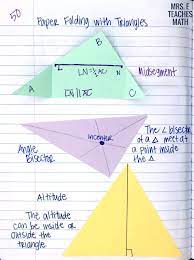 50
Paper Folding with Triangles
MRS. E
TEACHES
MATH
B
L
LN = ½AC
N
Midsegment
A
LN || AC
C
The ∠ bisectors
of a △ meet at
a point inside
the △
incenter
Angle
Bisector
Altitude
The altitude
can be inside or
outside the
triangle